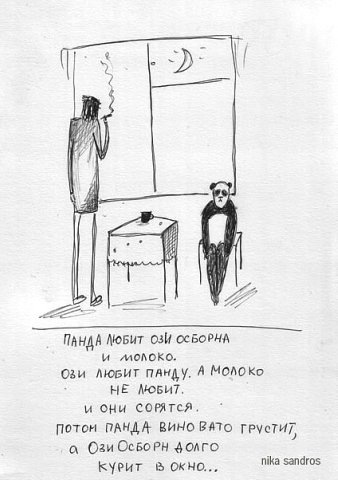 ПАНДА ЛЮБИТ ОЗИ ОСБОРНА
И МОЛОКО.
ОЗИ ЛЮБИТ ПАНДУ. А МОЛОКО
НЕ ЛЮБИТ.
И ОНИ СОРЯТСЯ.
ПОТОМ ПАНДА ВИНОВАТО ГРУСТИТ,
А ОЗИ ОСБОРН ДОЛГО
КУРИТ В ОКНО...
nika sandros